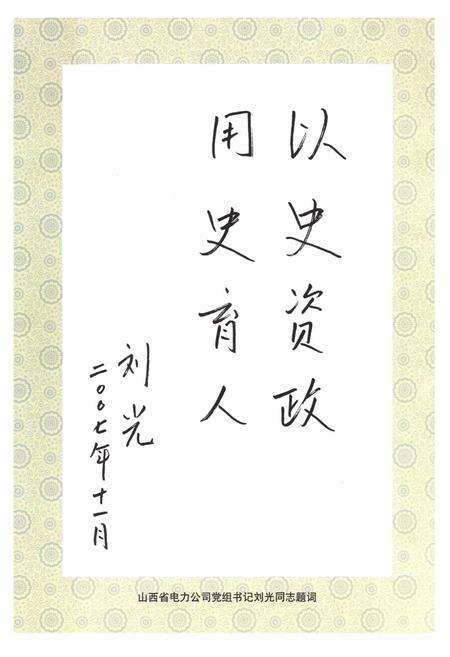 以史资政
用史育人
刘光
二〇〇七年十一月
山西省电力公司党组书记刘光同志题词